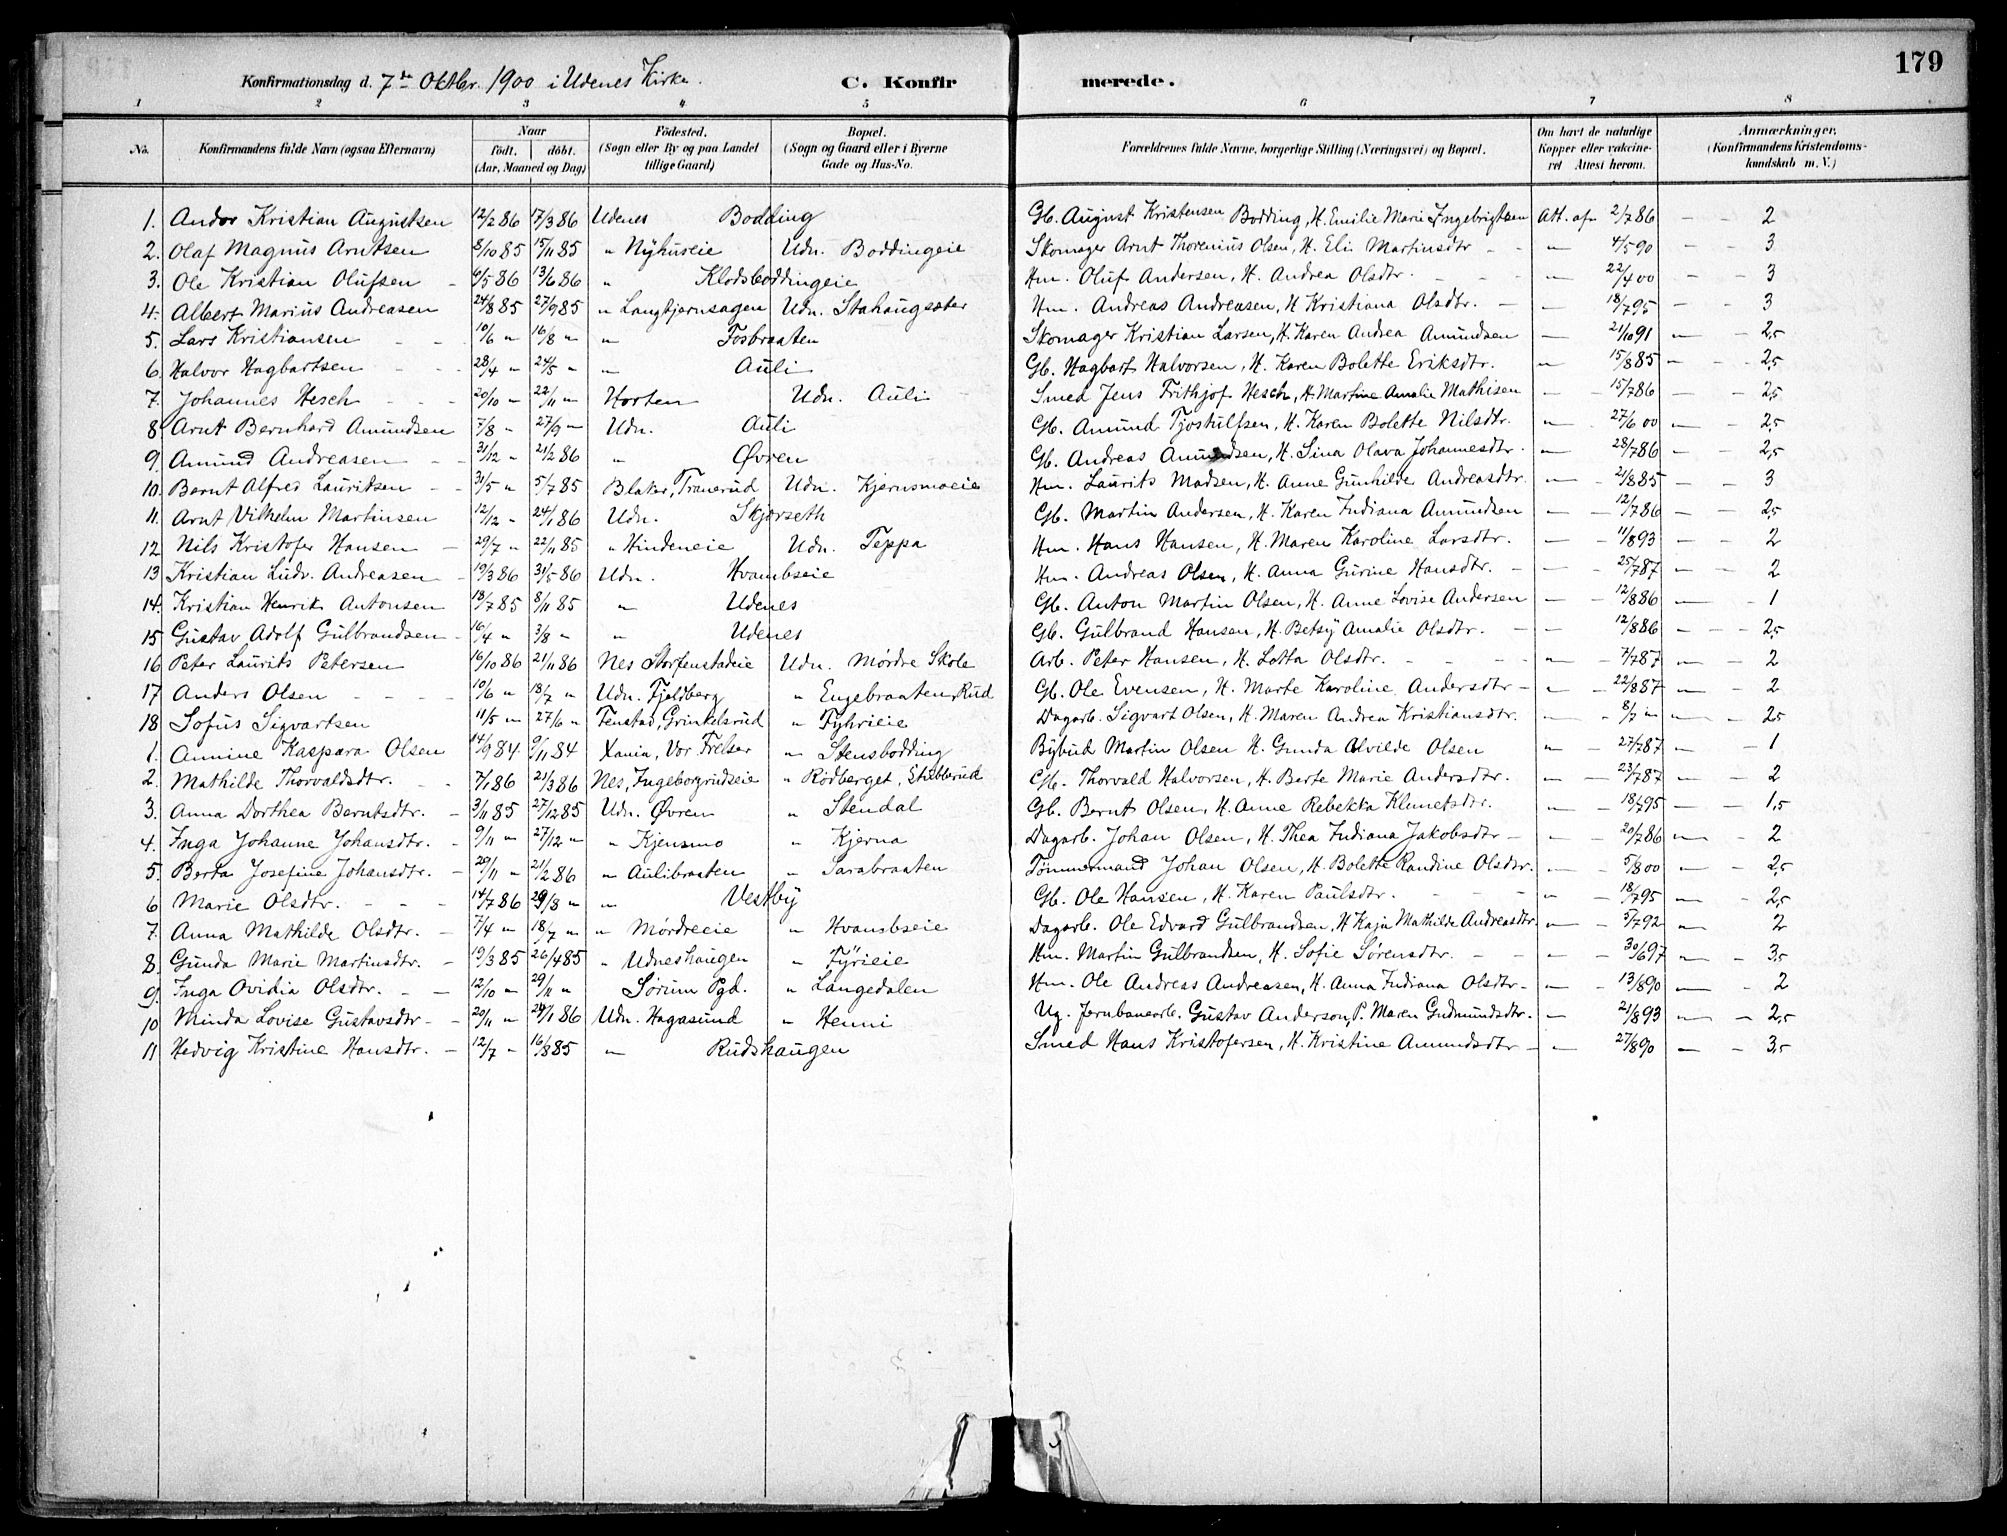 179
Konfirmationsdag d. 7de Oktbr. 1900 i Udenes Kirke. C. Konfirmerede.
1 2 3 4 5 6 7 8
No. Konfirmandens fulde Navn (ogsaa Efternavn) Naar født. døbt. (Aar, Maaned og Dag) Fødested. (Sogn eller By og paa Landet tillige Gaard) Bopæl. (Sogn og Gaard eller i Byerne Gade og Hus-No. Forældrenes fulde Navne, borgerlige Stilling (Næringsvei) og Bopæl. Om havt de naturlige Kopper eller vakcineret Attest herom. Anmærkninger. (Konfirmandens Kristendomskundskab m. V.)
1. Andor Kristian Augustsen 12/2 86 17/3 86 Udenes Bodding Gb. August Kristensen Bodding, H. Emilie Marie Ingebrigtsen Att. af 2/7 86 — — 2
2. Olaf Magnus Arntsen 8/10 85 15/11 85 " Nyhuseie Udn. Boddingeie Skomager Arnt Thorenius Olsen, H. Eli Martinsdtr - - " 4/5 90 — — 3
3. Ole Kristian Olufsen - 4/5 86 13/6 86 " Klodsboddingeie Hm. Oluf Andersen, H. Andrea Olsdtr. - - " 22/4 00 — — 3
4. Albert Marius Andreasen 24/8 85 27/9 85 " Langbjernsagen Udn. Stahaugsæter Hm. Andreas Andreasen, H Kristiana Olsdtr. — — 18/7 95 — — 3
5. Lars Kristiansen - - 10/6 " 16/8 " " Fosbraaten Skomager Kristian Larsen, H. Karen Andrea Amundsen — 21/10 91 " — 2,5
6. Halvor Hagbartsen - - 28/4 " 24/5 " " Auli Gb. Hagbart Halvorsen, H. Karen Bolette Eriksdtr. " 15/8 85 " - 2,5
7. Johannes Hesch - - - 20/10 " 22/11 " Horten Udn. Auli Smed Jens Frithjof Hesch, H. Martine Amalie Mathisen — 15/7 86 " - 2,5
8 Arnt Bernhard Amundsen 7/8 " 27/9 " Udn. Auli Gb. Amund Tjostulfsen, H. Karen Bolette Nilsdtr. " 27/6 00 " — 2,5
9. Amund Andreasen - - 31/12 " 21/2 86 " Øvren Gb. Andreas Amundsen, H. Lina Olava Johannesdtr. — 28/7 86 " — 2,5
10. Bernt Alfred Lauritsen - - 31/5 " 5/7 85 Blaker, Tranerud Udn. Kjernsmoeie Hm. Laurits Madsen, H. Anne Gunhilde Andreasdtr. " — 21/8 85 — — 3
11. Arnt Vilhelm Martinsen 12/12 " 24/1 86 Udn. Skjørseth Gb. Martin Andersen, H. Karen Indiana Amundsen — — 12/7 86 — — 2,5
12 Nils Kristofer Hansen — 29/7 " 22/11 85 " Hindeneie Udn. Teppa Hm. Hans Hansen, H. Maren Karoline Larsdtr. — — 11/8 93 — — 2
13 Kristian Ludv. Andreasen - 19/3 86 31/5 86 Udn. Hvambseie Hm. Andreas Olsen, H. Anna Gurine Hansdtr. — — 25/7 87 — — 2
14. Kristian Henrik Antonsen 13/7 85 8/11 85 " Udenes Gb. Anton Martin Olsen, H. Anne Lovise Andersen — — 12/8 86 — — 1
15 Gustav Adolf Gulbrandsen - 16/4 " 3/8 " " Udenes Gb. Gulbrand Hansen, H. Betsy Amalie Olsdtr. — — 12/8 86 — — 2,5
16 Peter Laurits Petersen 16/10 86 21/11 86 Nes Storfenstadeie Udn. Mørdre Skole Arb. Peter Hansen, H. Lotta Olsdtr. - - - " — 7/7 87 " — 2
17 Anders Olsen - - - - 10/6 " 18/7 " Udn. Fjeldberg " Engebraaten, Rud Gb. Ole Evensen, H. Marte Karoline Andersdtr - " — 22/8 87 " — 2
18 Sofus Sigvartsen 11/5 " 27/6 " Fenstad, Grinkelsrud " Fyhrieie Dagarb. Sigvart Olsen, H. Maren Andrea Kristiansdtr. " " 8/7 " " — 2,5
1. Annine Kaspara Olsen 14/9 84 9/11 84 Xania, Vor Frelser " Stensbodding Bybud Martin Olsen H. Gunda Alvilde Olsen " — 27/7 87 " — 1
2. Mathilde Thorvaldsdtr. - - 7/1 86 21/3 86 Nes, Ingeborgrudseie " Rødberget, Stubberud Gb. Thorvald Halvorsen, H. Berte Marie Andersdtr. " — 23/7 87 — — 2
3. Anna Dorthea Berntsdtr. - 3/11 85 27/12 85 Udn. Øvren " Stendal Gb. Bernt Olsen, H. Anne Rebekka Klemetsdtr. " — 18/7 95 — — 1,5
4. Inga Johanne Johansdtr. - 9/11 " 27/12 " " Kjensmo " Kjerna Dagarb. Johan Olsen, H. Thea Indiana Jakobsdtr — — — 20/7 86 " — 2
5. Berta Josefine Johansdtr. - 29/11 " 21/2 86 " Aulibraaten " Sarabraaten Tømmermand Johan Olsen, H. Bolette Randine Olsdtr. — — 5/8 00 — — 2,5
6 Marie Olsdtr. - - - 14/7 86 29/8 " " Vestby Gb. Ole Hansen, H. Karen Paulsdtr. - - - " — 18/7 95 " — 2,5
7. Anna Mathilde Olsdtr. - 7/4 " 18/7 " " Mørdreeie " Hvambseie Dagarb. Ole Edvard Gulbrandsen, H Kaja Mathilde Andreasdtr. " — 5/7 92 " 2
8. Gunda Marie Martinsdtr. - 19/3 85 26/4 85 " Udneshaugen " Fyrieie Hm. Martin Gulbrandsen, H. Sofie Sørensdtr. - - " — 30/6 97 " — 3,5
9. Inga Ovidia Olsdtr. - - 12/10 " 29/11 " Sørum Pgd. " Langedalen Hm. Ole Andreas Andreasen, H. Anna Indiana Olsdtr - " — 13/8 90 " — 2
10 Minda Lovise Gustavsdtr - - 20/11 " 24/1 86 Udn. Hagasund " Henni Ug. Jernbanearb. Gustav Anderson, P. Maren Gudmundsdtr. - — 21/8 93 " — 2,5
11 Hedvig Kristine Hansdtr. - 12/7 " 16/8 85 " Rudshaugen Smed Hans Kristofersen, H. Kristine Amundsdtr - — 27/8 90 — — 3,5